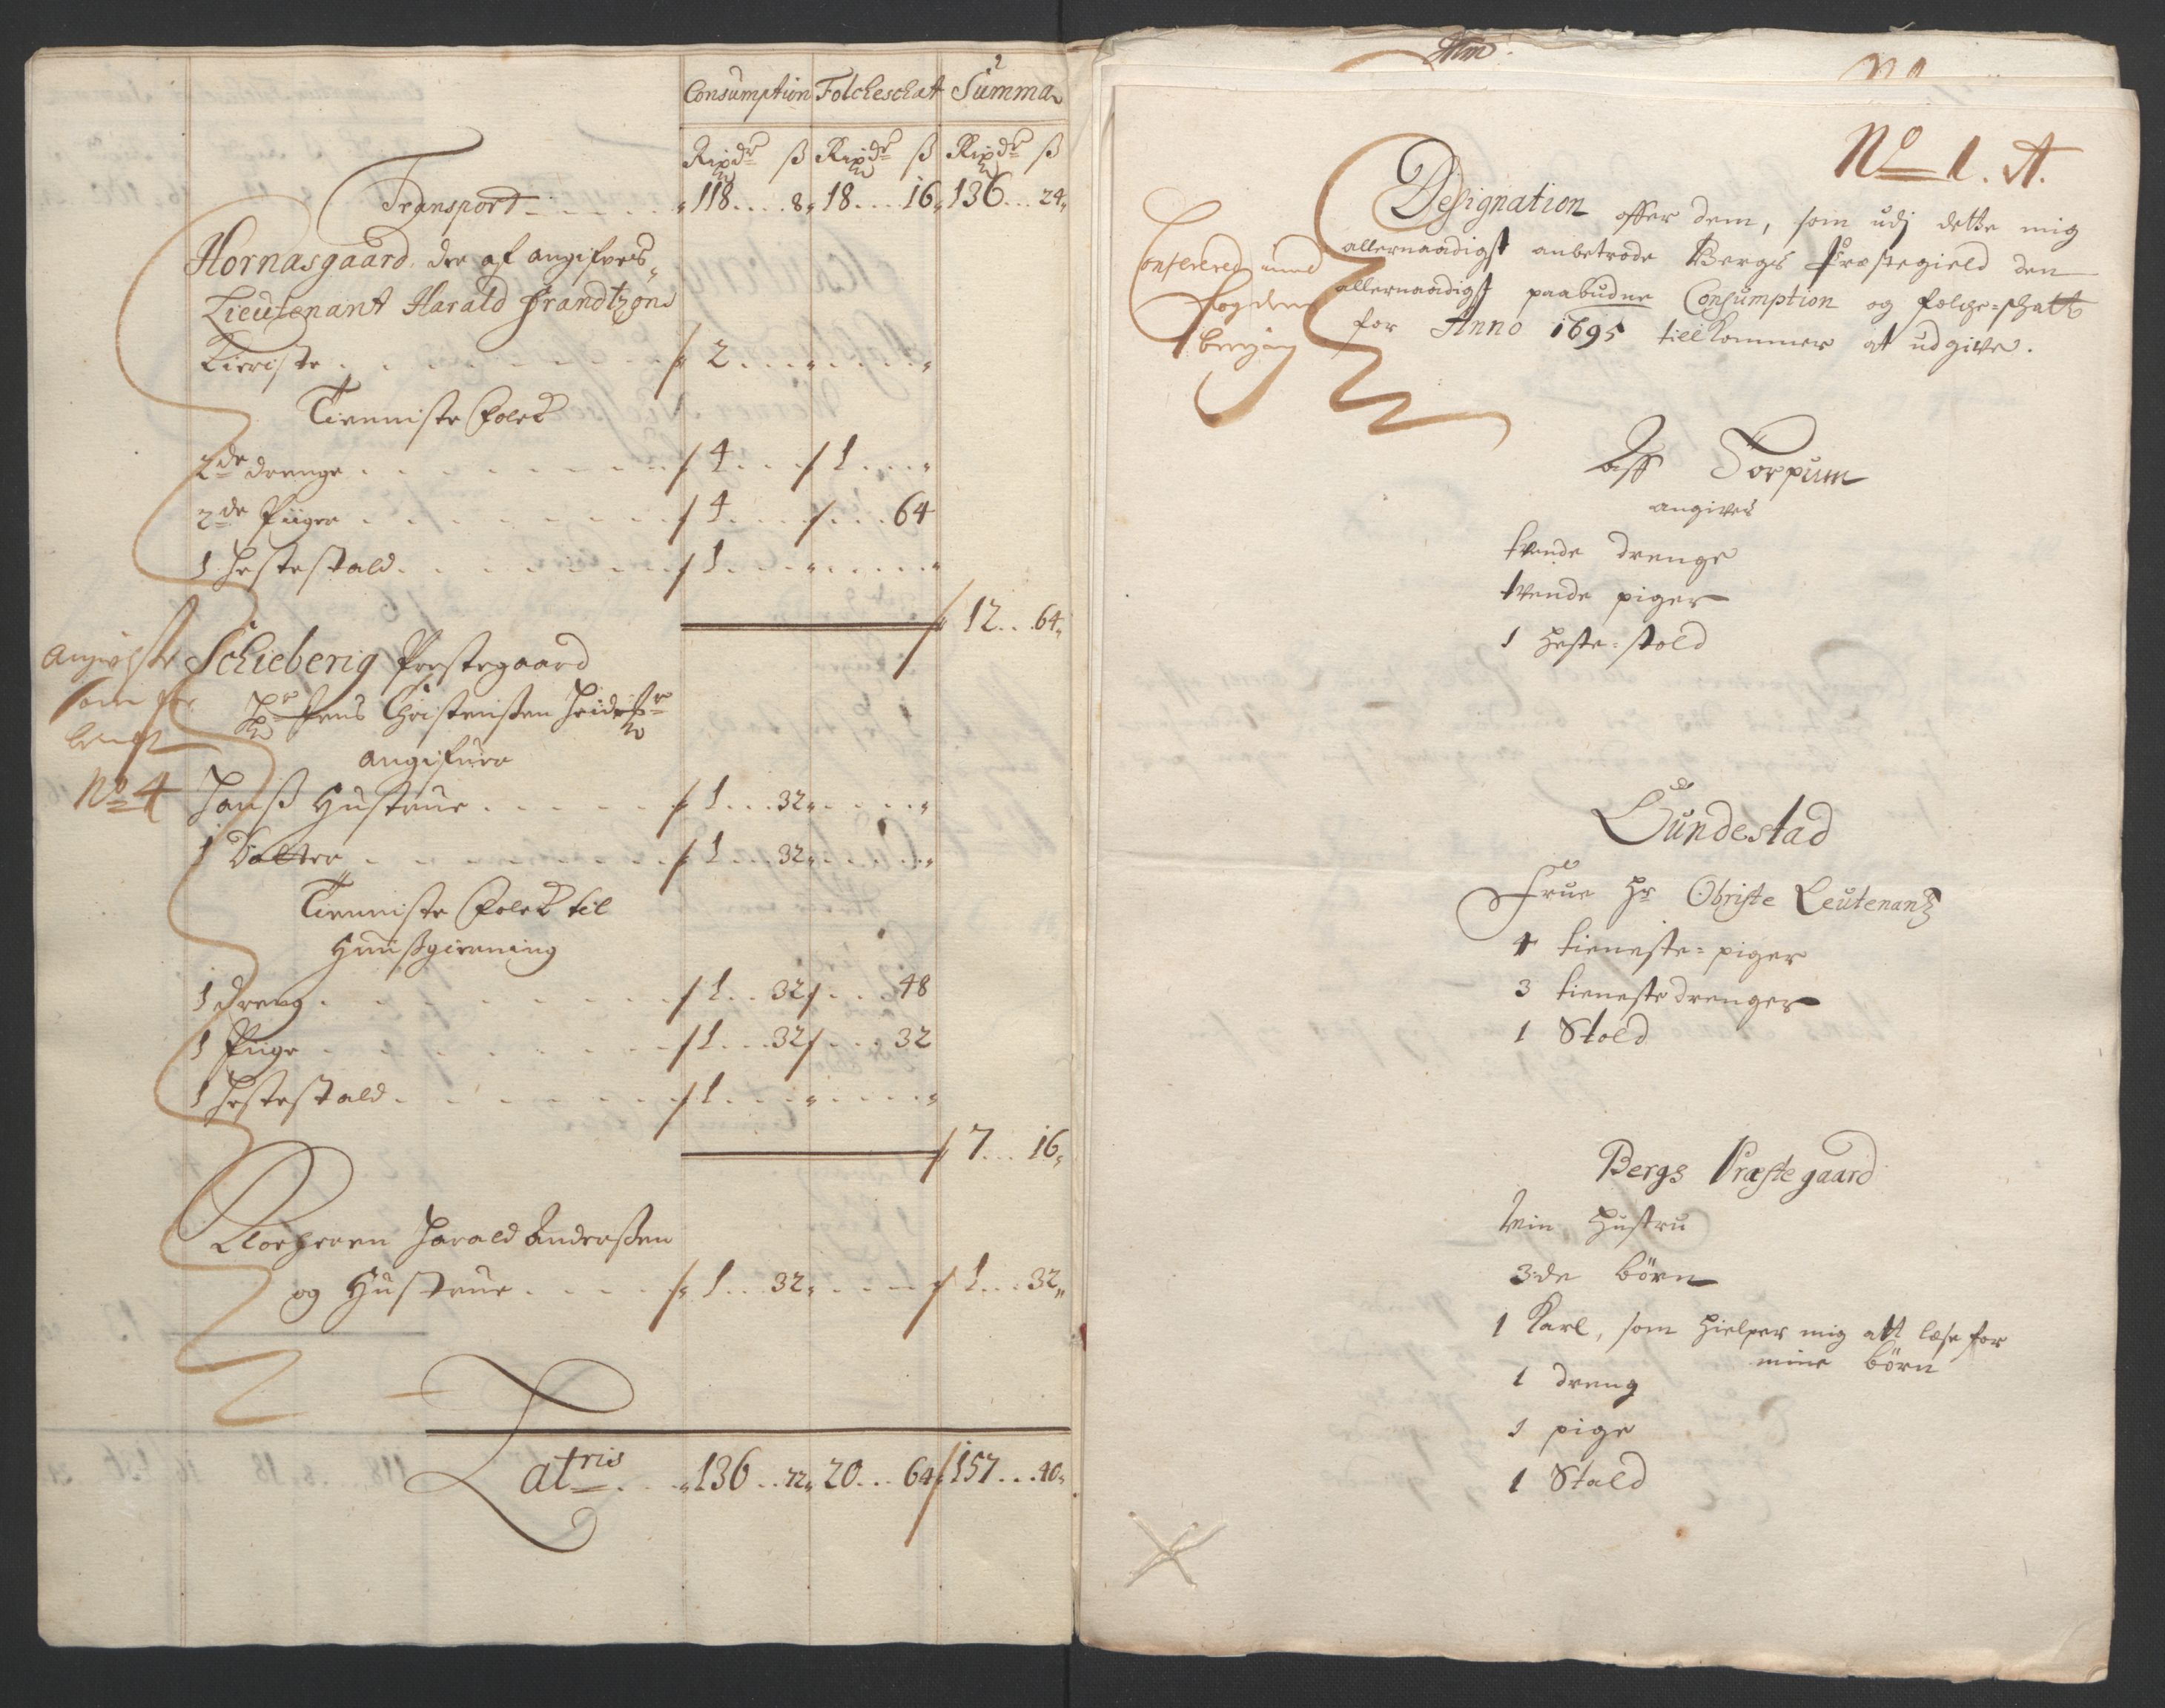 Consumption Folcheschat Summa
Rixdr ß Rixdr ß Rixdr ß
Transport 118 8 18 16 136 24
Hornasgaard der af angifves
Lieutenant Harald Frandtzøns
Kieriste 2
Tienniste Folck
2de drenge 4 1
2de Piiger 4 64
1 Hestestald 1
12 64
Schieberig Prestegaard
Hr Jens Christenßen
angifver
Hanß Hustrue 1 32
1 Datter 1 32
Tienniste Folck til
Huußgierning
1 dreng 1 32 48
1 Piige 1 32 32
1 Hestestald 1
7 16
Klocheren Harald Anderßen
og Hustrue 1 32 1 32
Latris 136 72 20 64 157 40
Angivelste
som før
No 4
No 1. A.
Designation offer dem, som udj dette mig
allernaadigst anbetrode Bergs Præstegield den
allernaadigst paabudne Consumption og folche-schatt
for Anno 1695 tilkommer at udgive.
Confereret med
fogdens
Aff Torpum
angives
tvende drenge
tvende piger
1 heste-stold
Gundestad
Frue Hr Obriste Leutenantz
4 tieneste-piger
3 tieneste drenger
1 Stold
Bergs Præstegaard
Min Hustru
3de børn
1 Karl, som hielper mig att læse for
mine børn
1 dreng
1 pige
1 Stald